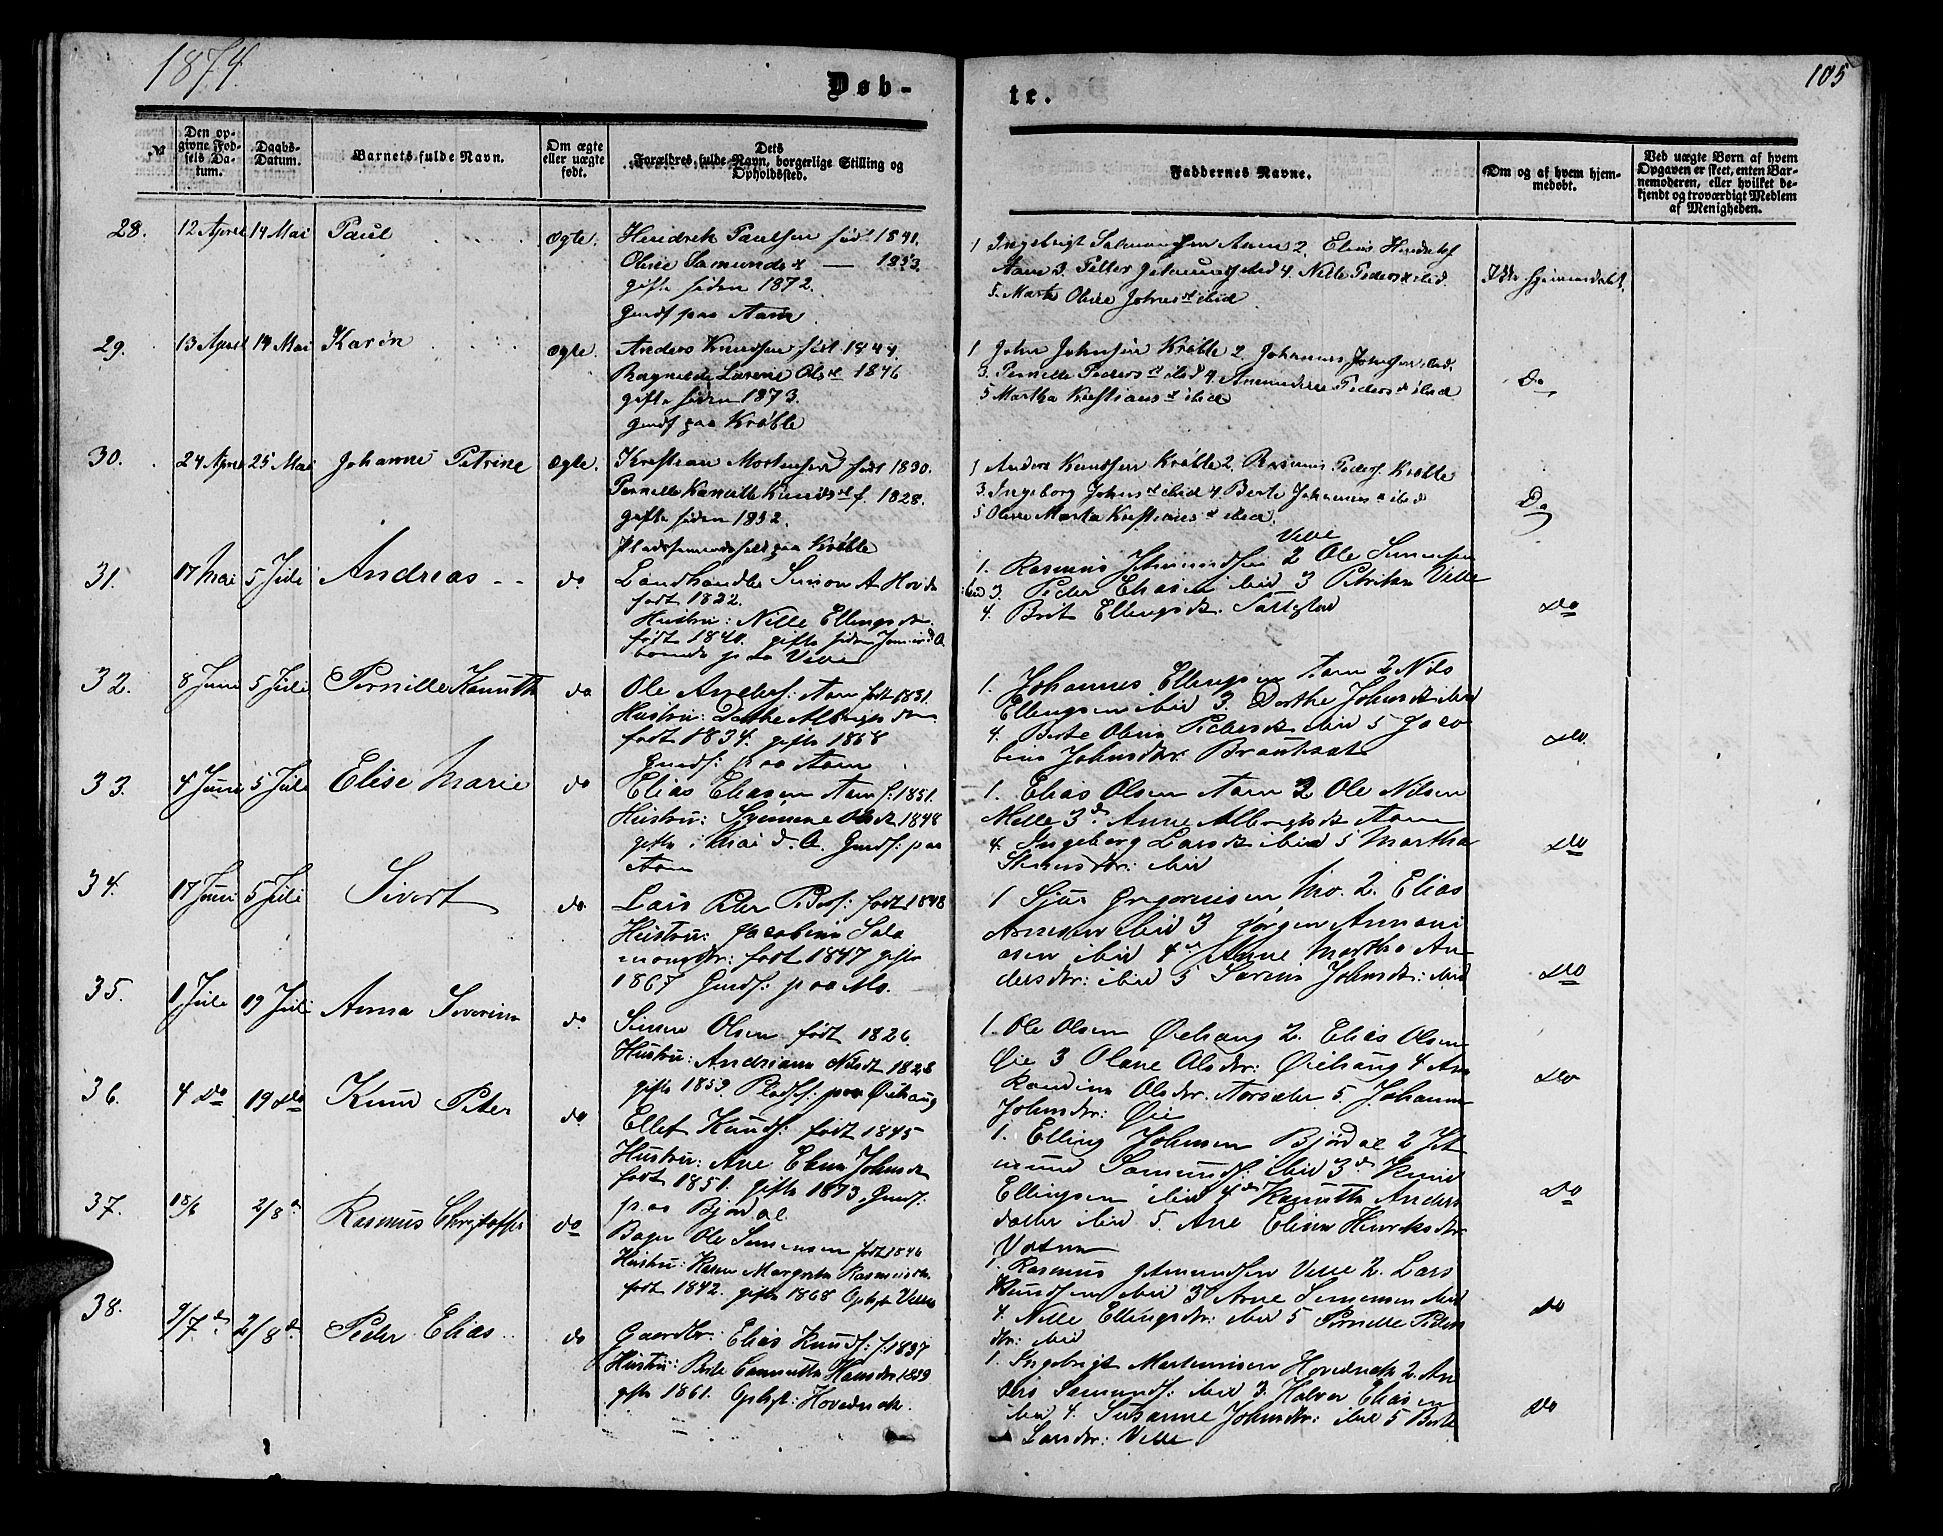 1874.
105
Døb-
te.
№
Den op-
givne Fød-
sels Da-
tum.
Daabs-
Datum.
Barnets fulde Navn.
Om ægte
eller uægte
født.
Dets
Forældres fulde Navn, borgerlige Stilling og
Opholdssted.
Faddernes Navne.
Om og af hvem hjem-
medøbt.
Ved uægte Børn af hvem
Opgaven er skeet, enten Bar-
nemoderen, eller hvilket be-
kjendt og troværdigt Medlem
af Menigheden.
28. 12 April 14 Mai Paul Ægte.
Hendrik Paulsen født 1841.
Oline Samundsd — 1853.
gifte siden 1872.
Gmdf paa Aam
1 Ingebrigt Aam 2. Elias
Aam 3. Petter ibid 4. Nille Pedersd ibid
5. Marte Oline Johnsd ibid
Ikke hjemmedøbt.
29. 13 April 14 Mai Karen ægte.
Anders Knudsen født 1844.
Ragnilde Larine Olsd 1846
gifte siden 1873.
Gmdf paa Krøble
1 John Johnsen Krøble 2. Johannes ibid.
3. Pernille Pedersd ibid 4. Pedersd ibid
5 Martha Kristiansd ibid
Do
30. 24 April 25 Mai Johanne Petrine Ægte.
Kristian Mortensen født 1830.
Pernille Kanutte Knudsd f. 1828.
gifte siden 1852.
paa Krøble
1 Anders Knudsen Krøble 2. Rasmus Pedersf. Krøble
3. Ingeborg Johnsd ibid 4. Berte Johannesd ibid
5 Oline Marta Kristiansd ibid.
Do
31. 17 Mai 5 Juli Andreas do
Landhandler Simon A Hovde
født 1822.
Hustru: Nille Ellingsdr
født 1840. gifte siden d. A.
boende paa Velle
Velle
1. Rasmus 2 Ole Simensen
ibid 3. Peder Eliasen ibid 3 Velle
4. Brit Ellingsdr.
do
32. 8 Juni 5 Juli Pernille Kanutte do
Ole Andersf: Aam født 1831.
Hustru: Dorthe Albrigtsdr
født 1834. gifte 1868
Gmdf: paa Aam
1. Johannes Ellingsen Aam 2 Nils
Ellingsen ibid 3. Dorthe Johnsdr ibid
4. Berte Oline Pedersdr ibid 5 Jaco-
bine Johnsdtr:
do.
33. 4 Juni 5 Juli Elise Marie do
Elias Eliasen Aam f. 1851.
Hustru: Olsdr 1848
gifte i Mai d. A. Gmdf: paa
Aam
1. Elias Olsen Aam 2 Ole Nilsen
Melle 3. Anne Albrigtsdr Aam
4. Ingeborg Larsdr ibid 5 Martha
ibid
do
34. 17 Juni 5 Juli Sivert do.
Lars Peter født 1848
Hustru: Jacobine Salo
monsdr: født 1847 gifte
1867 Gmdf: paa Mo.
1 Sjur Gregoriusen Mo. 2. Elias
ibid 3 Jørgen Annani
asen ibid 4 Anne Martha An-
dersdtr: ibid 5 Johnsdr: ibid
do
35. 1 Juli 19 Juli Anna Severine do
Simen Olsen født 1826
Hustru: Andriane Nilsdr 1828
gifte 1859. Pladsf: paa Øiehaug
1. Ole Olsen Øiehaug 2. Elias Olsen
Øie 3 Olave Olsdtr: Øiehaug 4 An
Olsdtr: 5. Johanne
Johnsdtr: Øie
do
36. 4 do 19 do Knud Peter do
Ellef Knudsf: født 1845
Hustru: Ane Johnsdr
født 1851. gifte 1873 Gmdf:
paa Bjørdal
1. Elling Johnsen Bjørdal 2
mund Samundsf: ibid 3 Knud
Ellingsen ibid 4 Kanutte Anders
datter ibid 5. Ane
do
37. 18/6 2/8 Rasmus Christoffer do
Bager Ole Simensen født 1846
Hustru: Karen Margrete Rasmusdtr.
født 1842. gifte 1868 Ophst Velle
1. Rasmus Velle 2. Lars
Knudsen ibid 3 Arne Simensen ibid
4. Nille Ellingsdtr: ibid 5 Pernille Peders
dtr: ibid
do
38. 9/7 2/8 Peder Elias do
Gaardbr: Elias Knudsf: f. 1837
Hustru: Berte Cannutte Hansdtr 1839
gifte 1861. Ophst: Hovednak.
1. Ingebrigt Martinusen Hovednak 2. An
ders Samundsf: ibid 3. Halvor Eliasen
ibid 4. Susanne Johnsdtr: ibid 5 Berte
Larsdtr: Velle
do